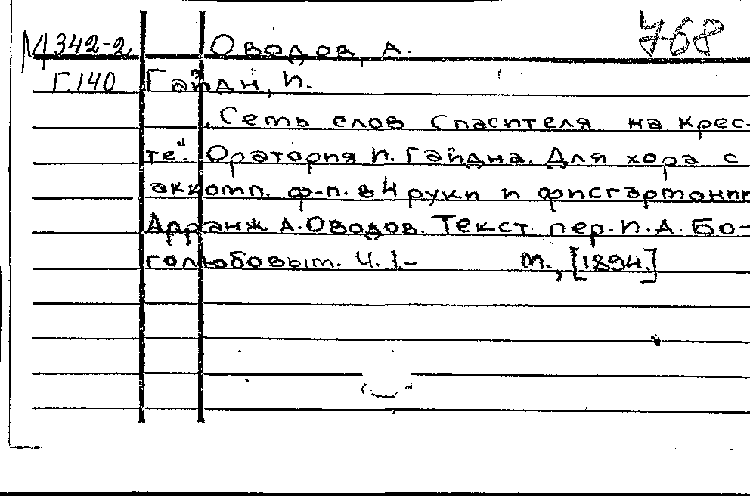 М 342-2 Оводов, А. 768
Г.140 Гайдн, И.
„Семь слов Спасителя на крес-
те". Оратория И. Гайдна. Для хора с
аккомп. ф-п. в 4 руки и фисгармонии
Арранж А. Оводов. Текст пер. И. А. Бо-
голюбовым. Ч. 1- М., [1894.]